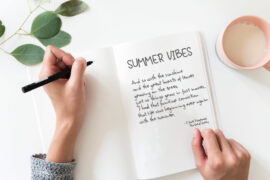 SUMMER VIBES
And so with the sunshine
and the great bursts of leaves
growing on the trees,
just as things grow in fast movies,
I had that familiar conviction
that life was beginning over again
with the summer.